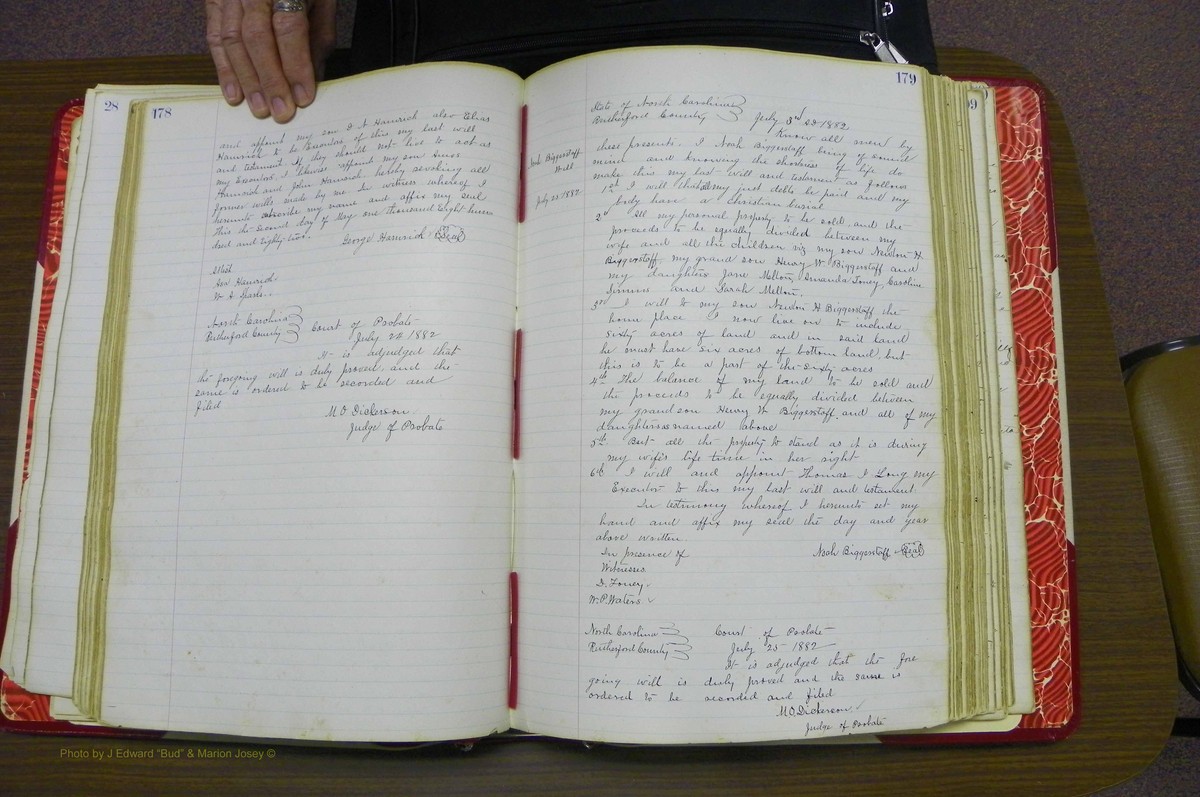 28
178
and appoint my son D A Hamrick also Elias
Hamrick to be Executors of this my last will
and testament if they should not live to act as
my Executors, I likewise appoint my son
Hamrick and John Hamrick hereby revoking all
former wills made by me In witness whereof I
hereunto subscribe my name and affix my seal
This the second day of May one thousand Eight hun
dred and Eighty two.
George Hamrick Seal
Attest
Hamrick
W A
North Carolina
Rutherford County
Court of Probate
July 22 1882
It is adjudged that
the foregoing will is duly proved and the
same is ordered to be recorded and
filed
M. O. Dickerson
Judge of Probate
179
99
Noah Biggerstaff
Will
July 25 1882
State of North Carolina
Rutherford County
July 3rd AD 1882
Know all men by
these presents. I Noah Biggerstaff being of sound
mind and knowing the shortness of life do
make this my last will and testament as follows
1st I will that all my just debts be paid and my
body have a christian burial
2nd All my personal property to be sold, and the
proceeds to be equally divided between my
wife and all the children viz my son Newton H.
Biggerstaff, my grand son Henry W. Biggerstaff and
my daughters Jane Melton, Amanda Toney, Caroline
Simmons and Sarah Melton.
3rd I will to my son Newton H Biggerstaff the
home place I now live on to include
sixty acres of land and in said land
he must have six acres of bottom land, but
this is to be a part of the sixty acres
4th The balance of my land to be sold and
the proceeds to be equally divided between
my grand son Henry W Biggerstaff, and all of my
daughters as named above
5th But all the property to stand as it is during
my wife's life time in her right
6th I will and appoint Thomas J Long my
Executor to this my last will and testament.
In testimony whereof I hereunto set my
hand and affix my seal the day and year
above written.
In presence of
Noah Biggerstaff Seal
Witnesses
D. Toney.
W. P. Waters
North Carolina
Rutherford County
Court of Probate
July 25 1882
It is adjudged that the fore
going will is duly proved and the same is
ordered to be recorded and filed
M. O. Dickerson
Judge of Probate
Photo by J Edward "Bud" & Marion Josey ©